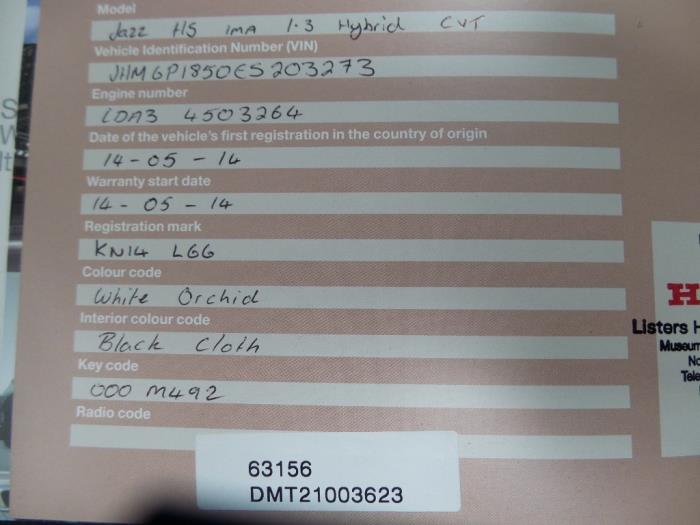 Model
Jazz HS IMA 1.3 Hybrid CVT
Vehicle Identification Number (VIN)
JHMGP1850ES203273
Engine number
LDA3 4503264
Date of the vehicle's first registration in the country of origin
14-05-14
Warranty start date
14-05-14
Registration mark
KN14 LGG
Colour code
White Orchid
Interior colour code
Black Cloth
Key code
000 M492
Radio code
63156
DMT21003623
H
Listers H
Museum
No
Tele